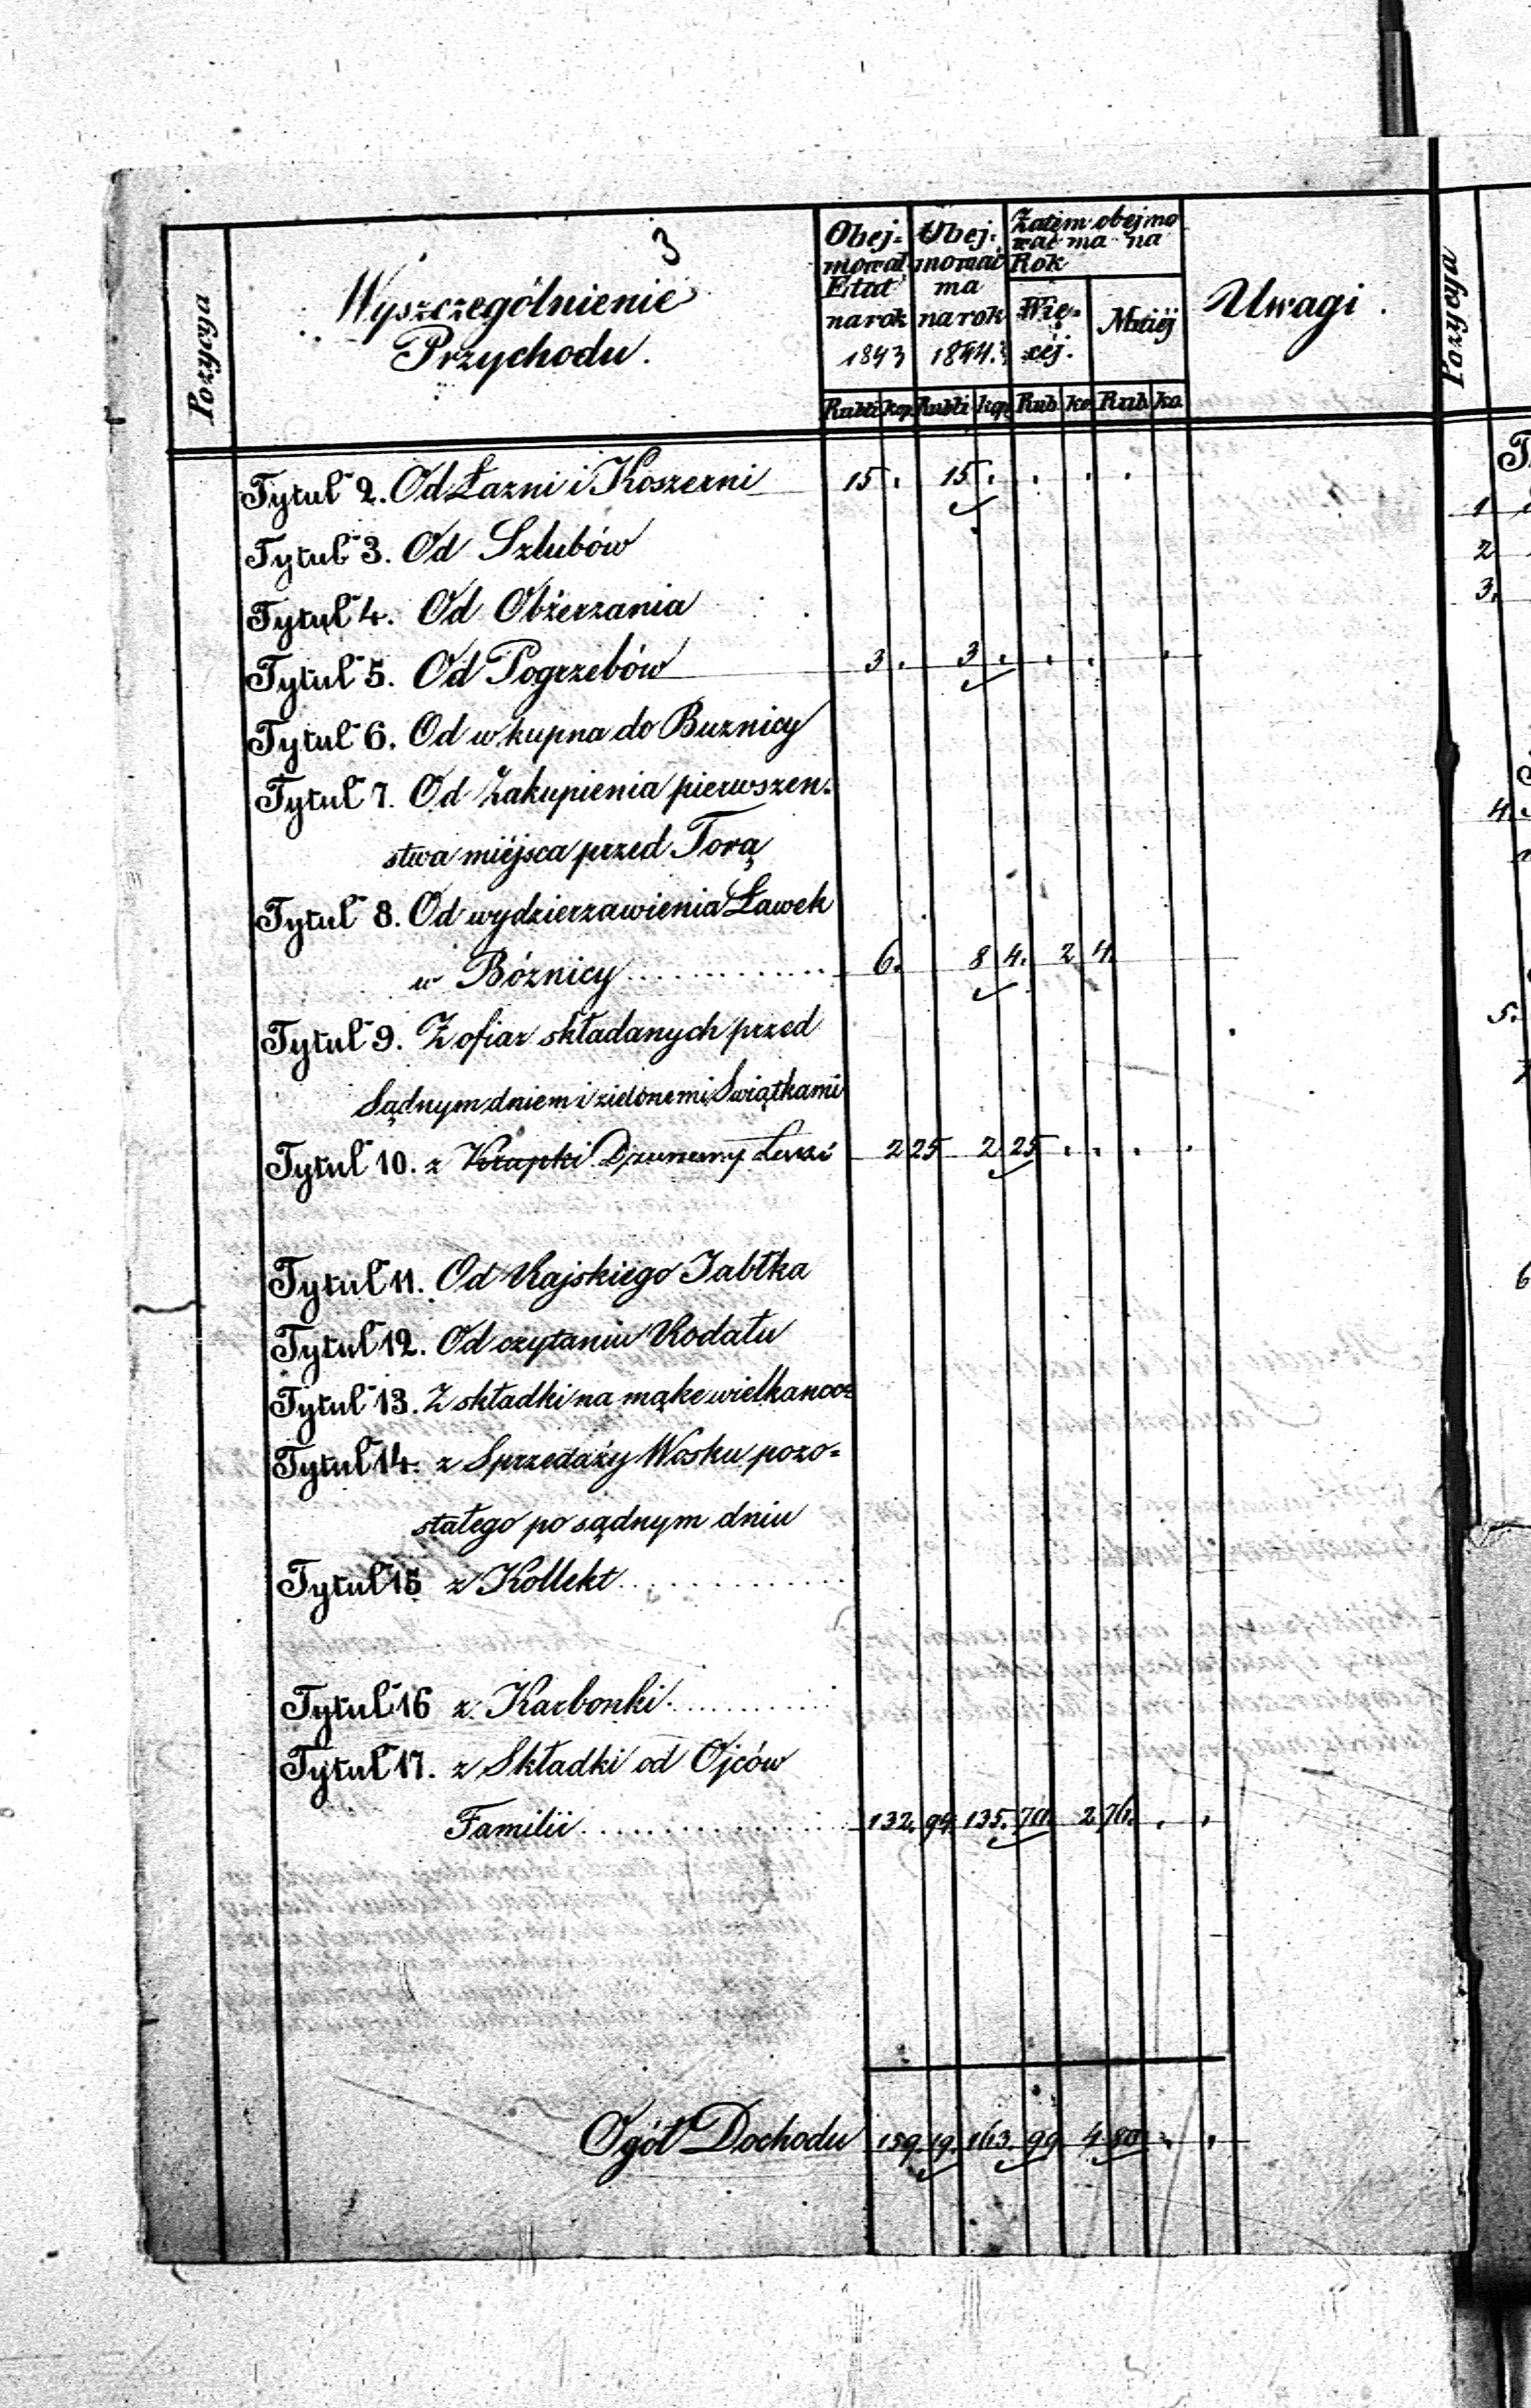 3
Pozycya
Wyszczególnienie
Przychodu.
Obej-
mował
Etat
na rok
1843
Obej-
mować
ma
na rok
1844.
Zatem obejmo
wać ma na
Rok
Wię-
céj.
Mniéj
Uwagi
Rubli kop Rubli kop Rub. ko Rub. ko
Tytuł 2. Od Łazni i Koszerni 15 . 15 . . . .
Tytuł 3. Od Szlubów
Tytuł 4. Od Obżerzania
Tytuł 5. Od Pogrzebów 3 . 3 . . . .
Tytuł 6. Od wkupna do Buznicy
Tytuł 7. Od Zakupienia pierwszen-
stwa miéjsca przed Torą
Tytuł 8. Od wydzierzawienia Ławek
w Bóznicy ............ 6. 8 4. 2 4.
Tytuł 9. Z ofiar składanych przed
Sądnym dniem i zielonemi Swiątkami
Tytuł 10. z Krupki 2 25 2 25 . . . .
Tytuł 11. Od Rajskiego Jabłka
Tytuł 12. Od czytaniu Rodału
Tytuł 13. Z składki na mąke wielkanoc=
Tytuł 14. z Sprzedaży Wosku pozo=
stałego po sądnym dniu
Tytuł 15 z Kollekt ............
Tytuł 16 z Karbonki ............
Tytuł 17. z Składki od Ojców
Familii ............ 132. 94 135. 70 2 76. . .
Ogół Dochodu 159. 19. 163. 99 4 80 . .
Pozycya
1
2
3.
4.
5.
6